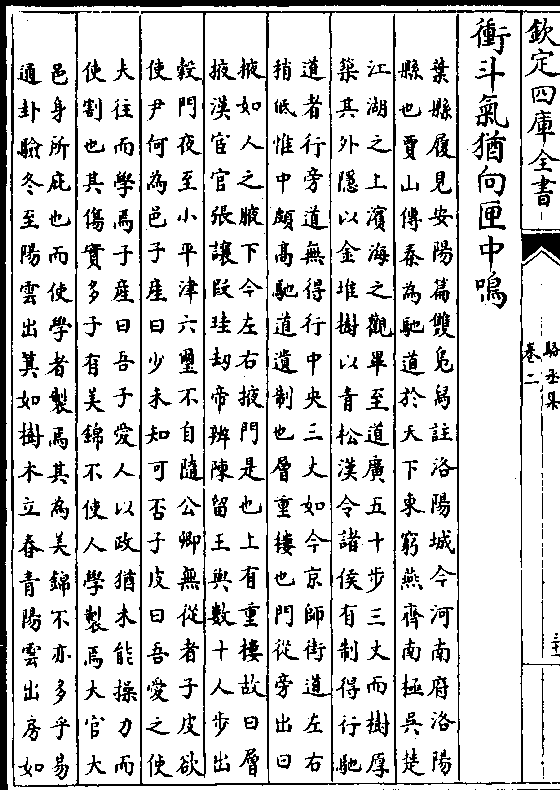 欽定四庫全書
駱丞集
卷二
衝斗氣猶向匣中鳴
葉縣履見安陽篇雙鳬舄註洛陽城今河南府洛陽
縣也賈山傳秦為馳道於天下東窮燕齊南極吳楚
江湖之上濱海之觀畢至道廣五十步三丈而樹厚
築其外隱以金堆樹以青松漢令諸侯有制得行馳
道者行旁道無得行中央三丈如今京師街道左右
稍低惟中頗高馳道遺制也層重樓也門從旁出曰
掖如人之腋下今左右掖門是也上有重樓故曰層
掖漢宦官張讓段珪劫帝辨陳留王與數十人步出
穀門夜至小平津六璽不自隨公卿無從者子皮欲
使尹何為邑子產曰少未知可否子皮曰吾愛之使
夫往而學焉子產曰吾子愛人以政猶未能操刀而
使割也其傷實多子有美錦不使人學製焉大官大
邑身所庇也而使學者製焉其為美錦不亦多乎易
通卦驗冬至陽雲出箕如樹木立春青陽雲出房如